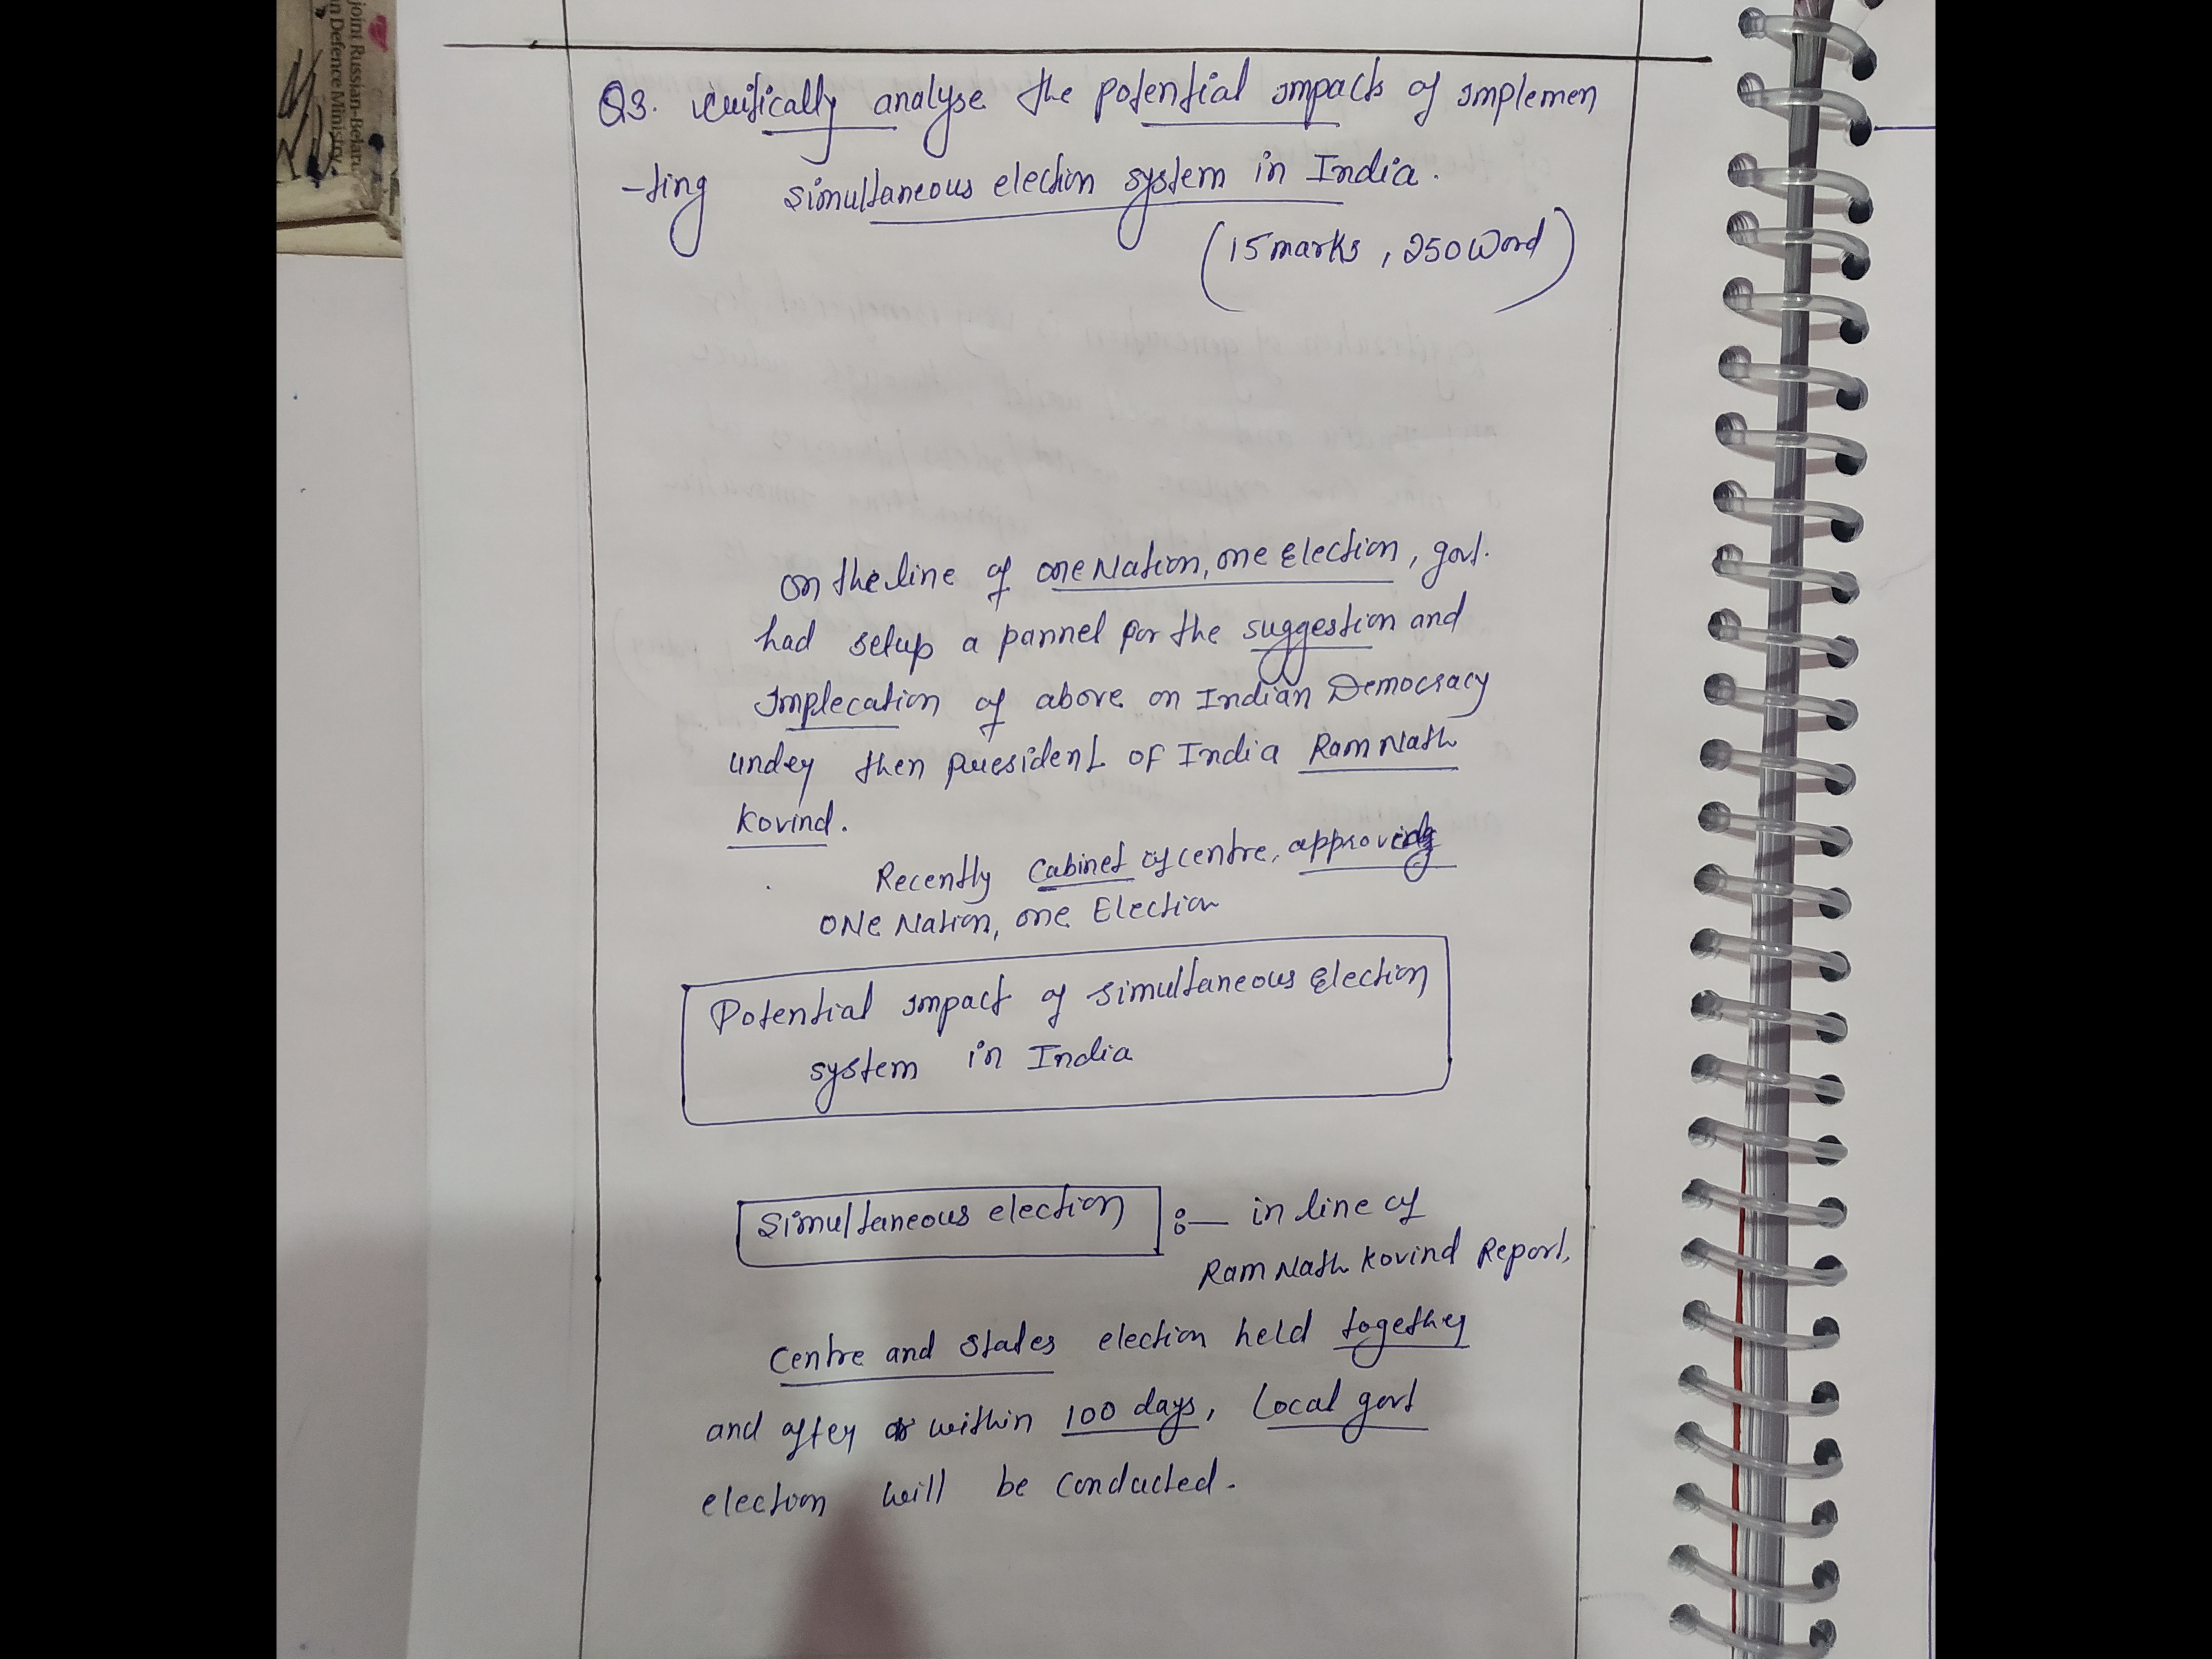 joint Russian-Belaru
n Defence Ministry
Q3. critically analyse the potential impacts of implemen
-ting simultaneous election system in India.
(15 marks, 250 Word)
on the line of one Nation, one Election, govt.
had setup a pannel for the suggestion and
Implecation of above on Indian Democracy
under then president of India Ram Nath
Kovind.
Recently Cabinet of centre, approving
ONe Nation, one Election
Potential impact of simultaneous Election
system in India
Simultaneous election :— in line of
Ram Nath Kovind Report,
Centre and States election held together
and after within 100 days, Local govt
election will be conducted.